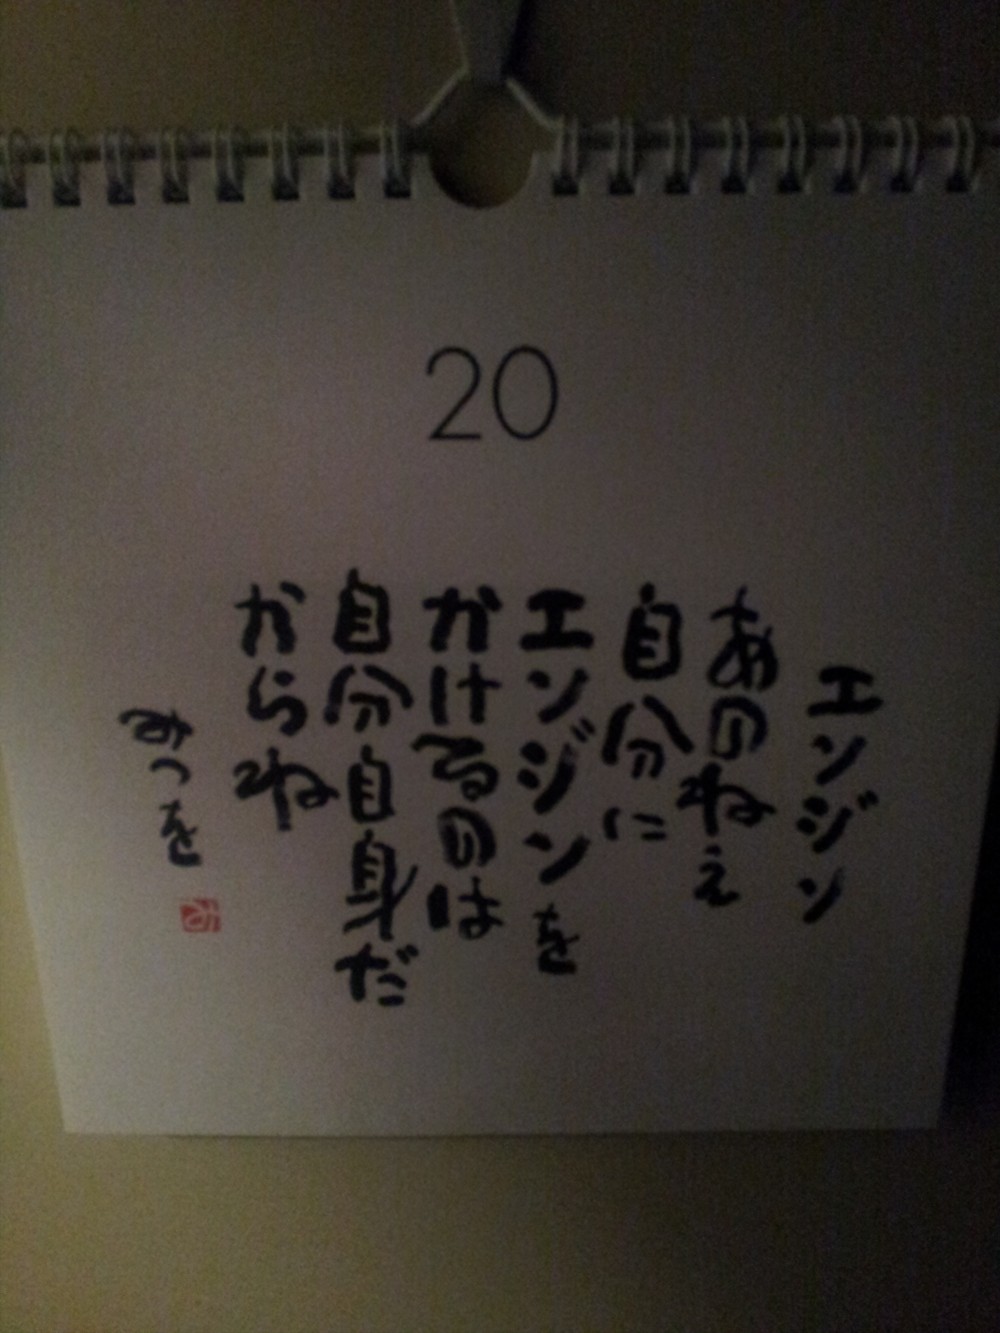 20
エンジン
あのねえ
自分に
エンジンを
かけるのは
自分自身だ
からね
みつを
み